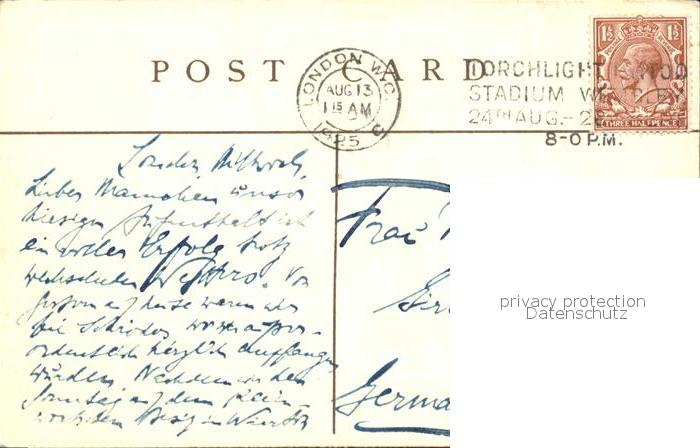 POST CARD
LONDON W.C.
AUG 13
1 15 AM
1925
TORCHLIGHT TATTOO
STADIUM WEMBLEY
24TH AUG.-
8-0 P.M.
1½ 1½
THREE HALFPENCE
London, Mittwoch,
Liebes Mamachen unser
hiesiger Aufenthalt ist
ein voller Erfolg trotz
wechselnden Wetters. Von
gestern auf heute waren wir
bei Schröder wo wir
ordentlich herzlich empfangen
wurden. Nachdem wir den
Sonntag auf dem
Besitz in
Frau
Germa
privacy protection
Datenschutz